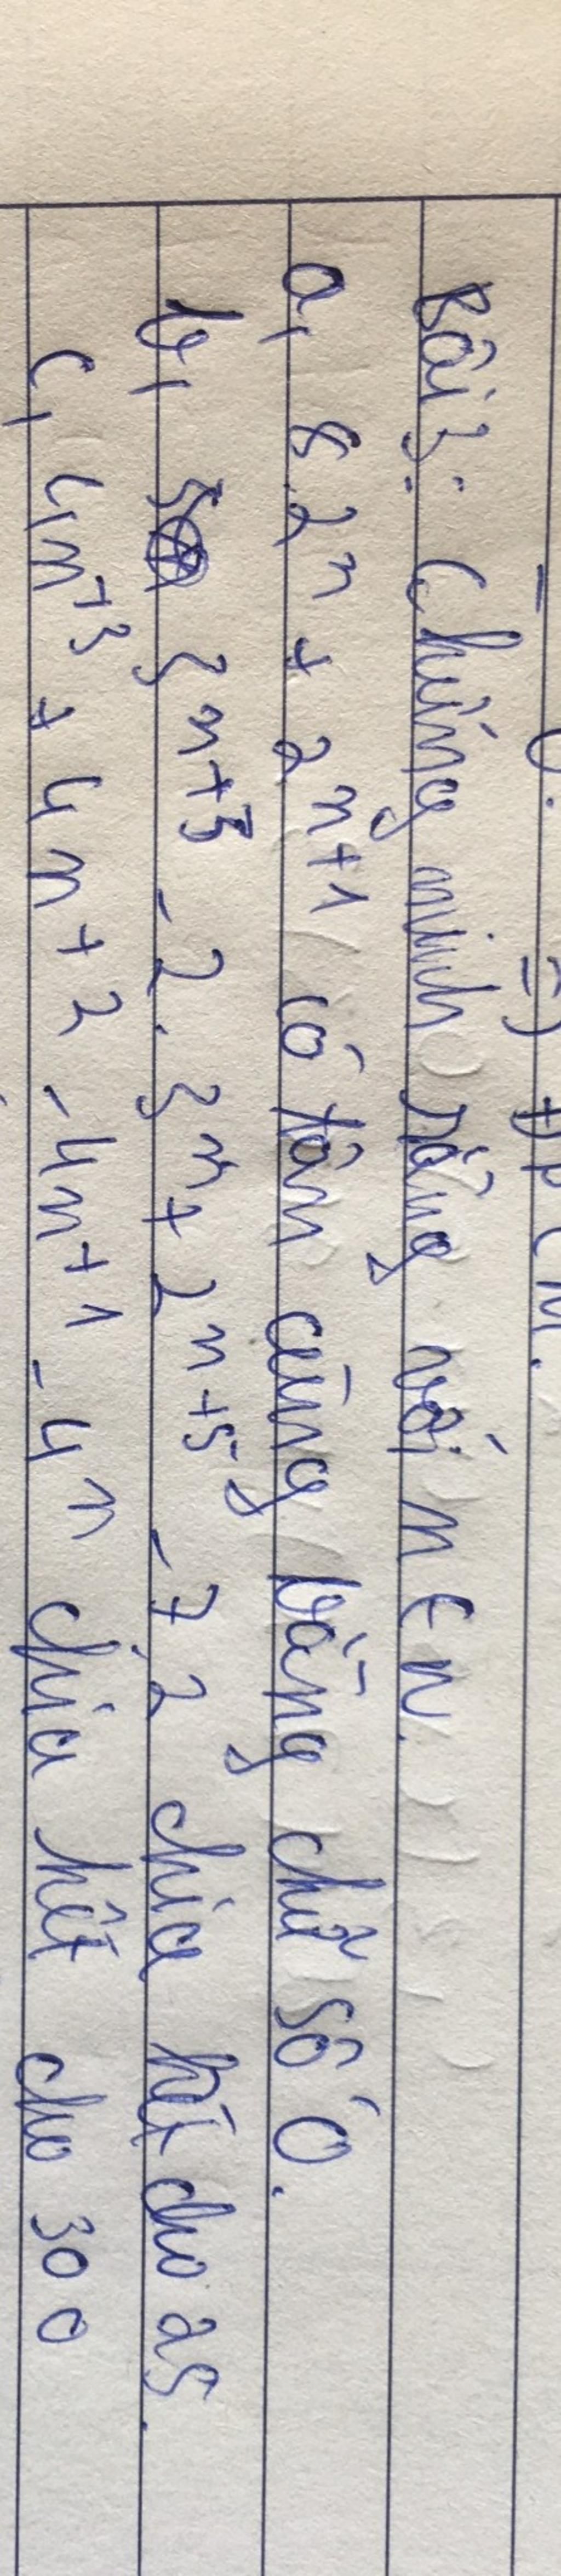 Bài 3: Chứng minh rằng với n ∈ n.
a, 8.2^n + 2^{n+1} có tận cùng bằng chữ số 0.
b, 3^{n+3} - 2.3^n + 2^{n+5} - 7.2 chia hết cho 25.
c, 4^{n+3} + 4^{n+2} - 4^{n+1} - 4^n chia hết cho 300